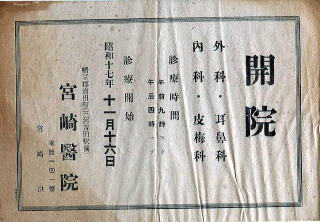 開院
外科・耳鼻科
内科・皮梅科
診療時間
午前九時ヨリ
午后四時マデ
診療開始
昭和十七年十一月十六日
宮崎醫院
電話一四一番
宮崎